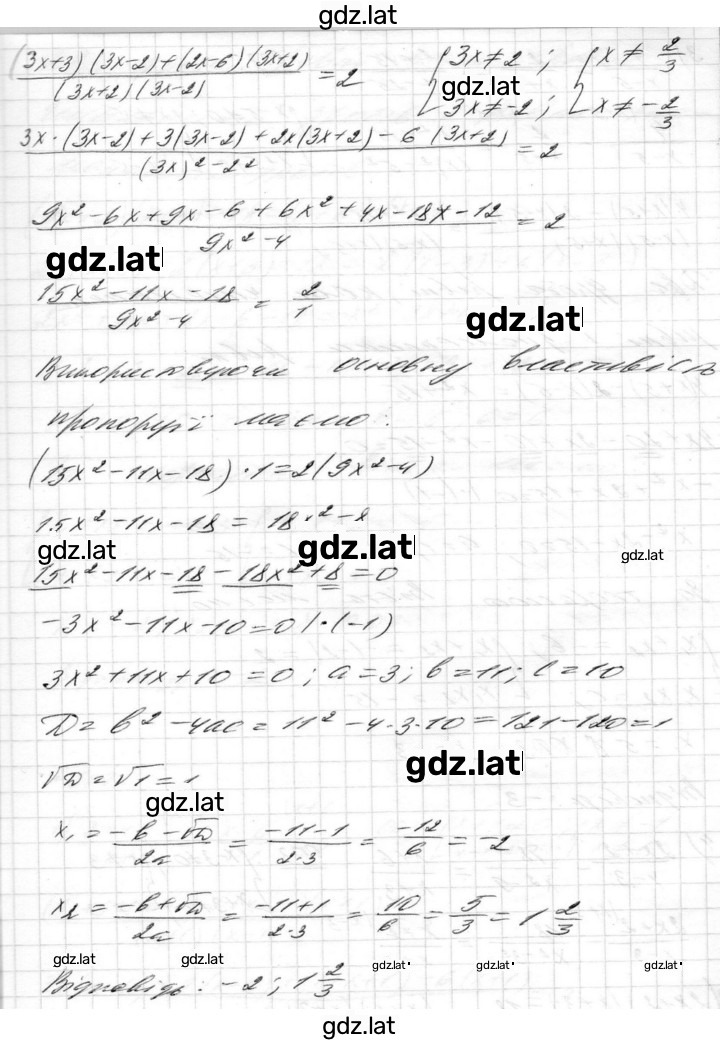 gdz.lat
(3x+3)(3x-2)+(2x-6)(3x+2) / (3x+2)(3x-2) = 2 { 3x≠2; 3x≠-2; { x≠ 2/3 x≠ -2/3
gdz.lat
3x·(3x-2)+3(3x-2)+2x(3x+2)-6(3x+2) / (3x)²-2² = 2
9x²-6x+9x-6+6x²+4x-18x-12 / 9x²-4 = 2
gdz.lat
15x²-11x-18 / 9x²-4 = 2/1
gdz.lat
Використовуючи основну властивість
пропорції маємо:
(15x²-11x-18)·1=2(9x²-4)
15x²-11x-18 = 18·²-8
gdz.lat gdz.lat gdz.lat
15x²-11x-18-18x²+8=0
-3x²-11x-10=0 |·(-1)
3x²+11x+10=0; a=3; b=11; c=10
D=b²-4ac=11²-4·3·10=121-120=1
gdz.lat
√D=√1=1
gdz.lat
x₁ = -b-√D / 2a = -11-1 / 2·3 = -12/6 = -2
x₂ = -b+√D / 2a = -11+1 / 2·3 = 10/6 = 5/3 = 1 2/3
gdz.lat gdz.lat gdz.lat gdz.lat gdz.lat
Відповідь: -2; 1 2/3
gdz.lat